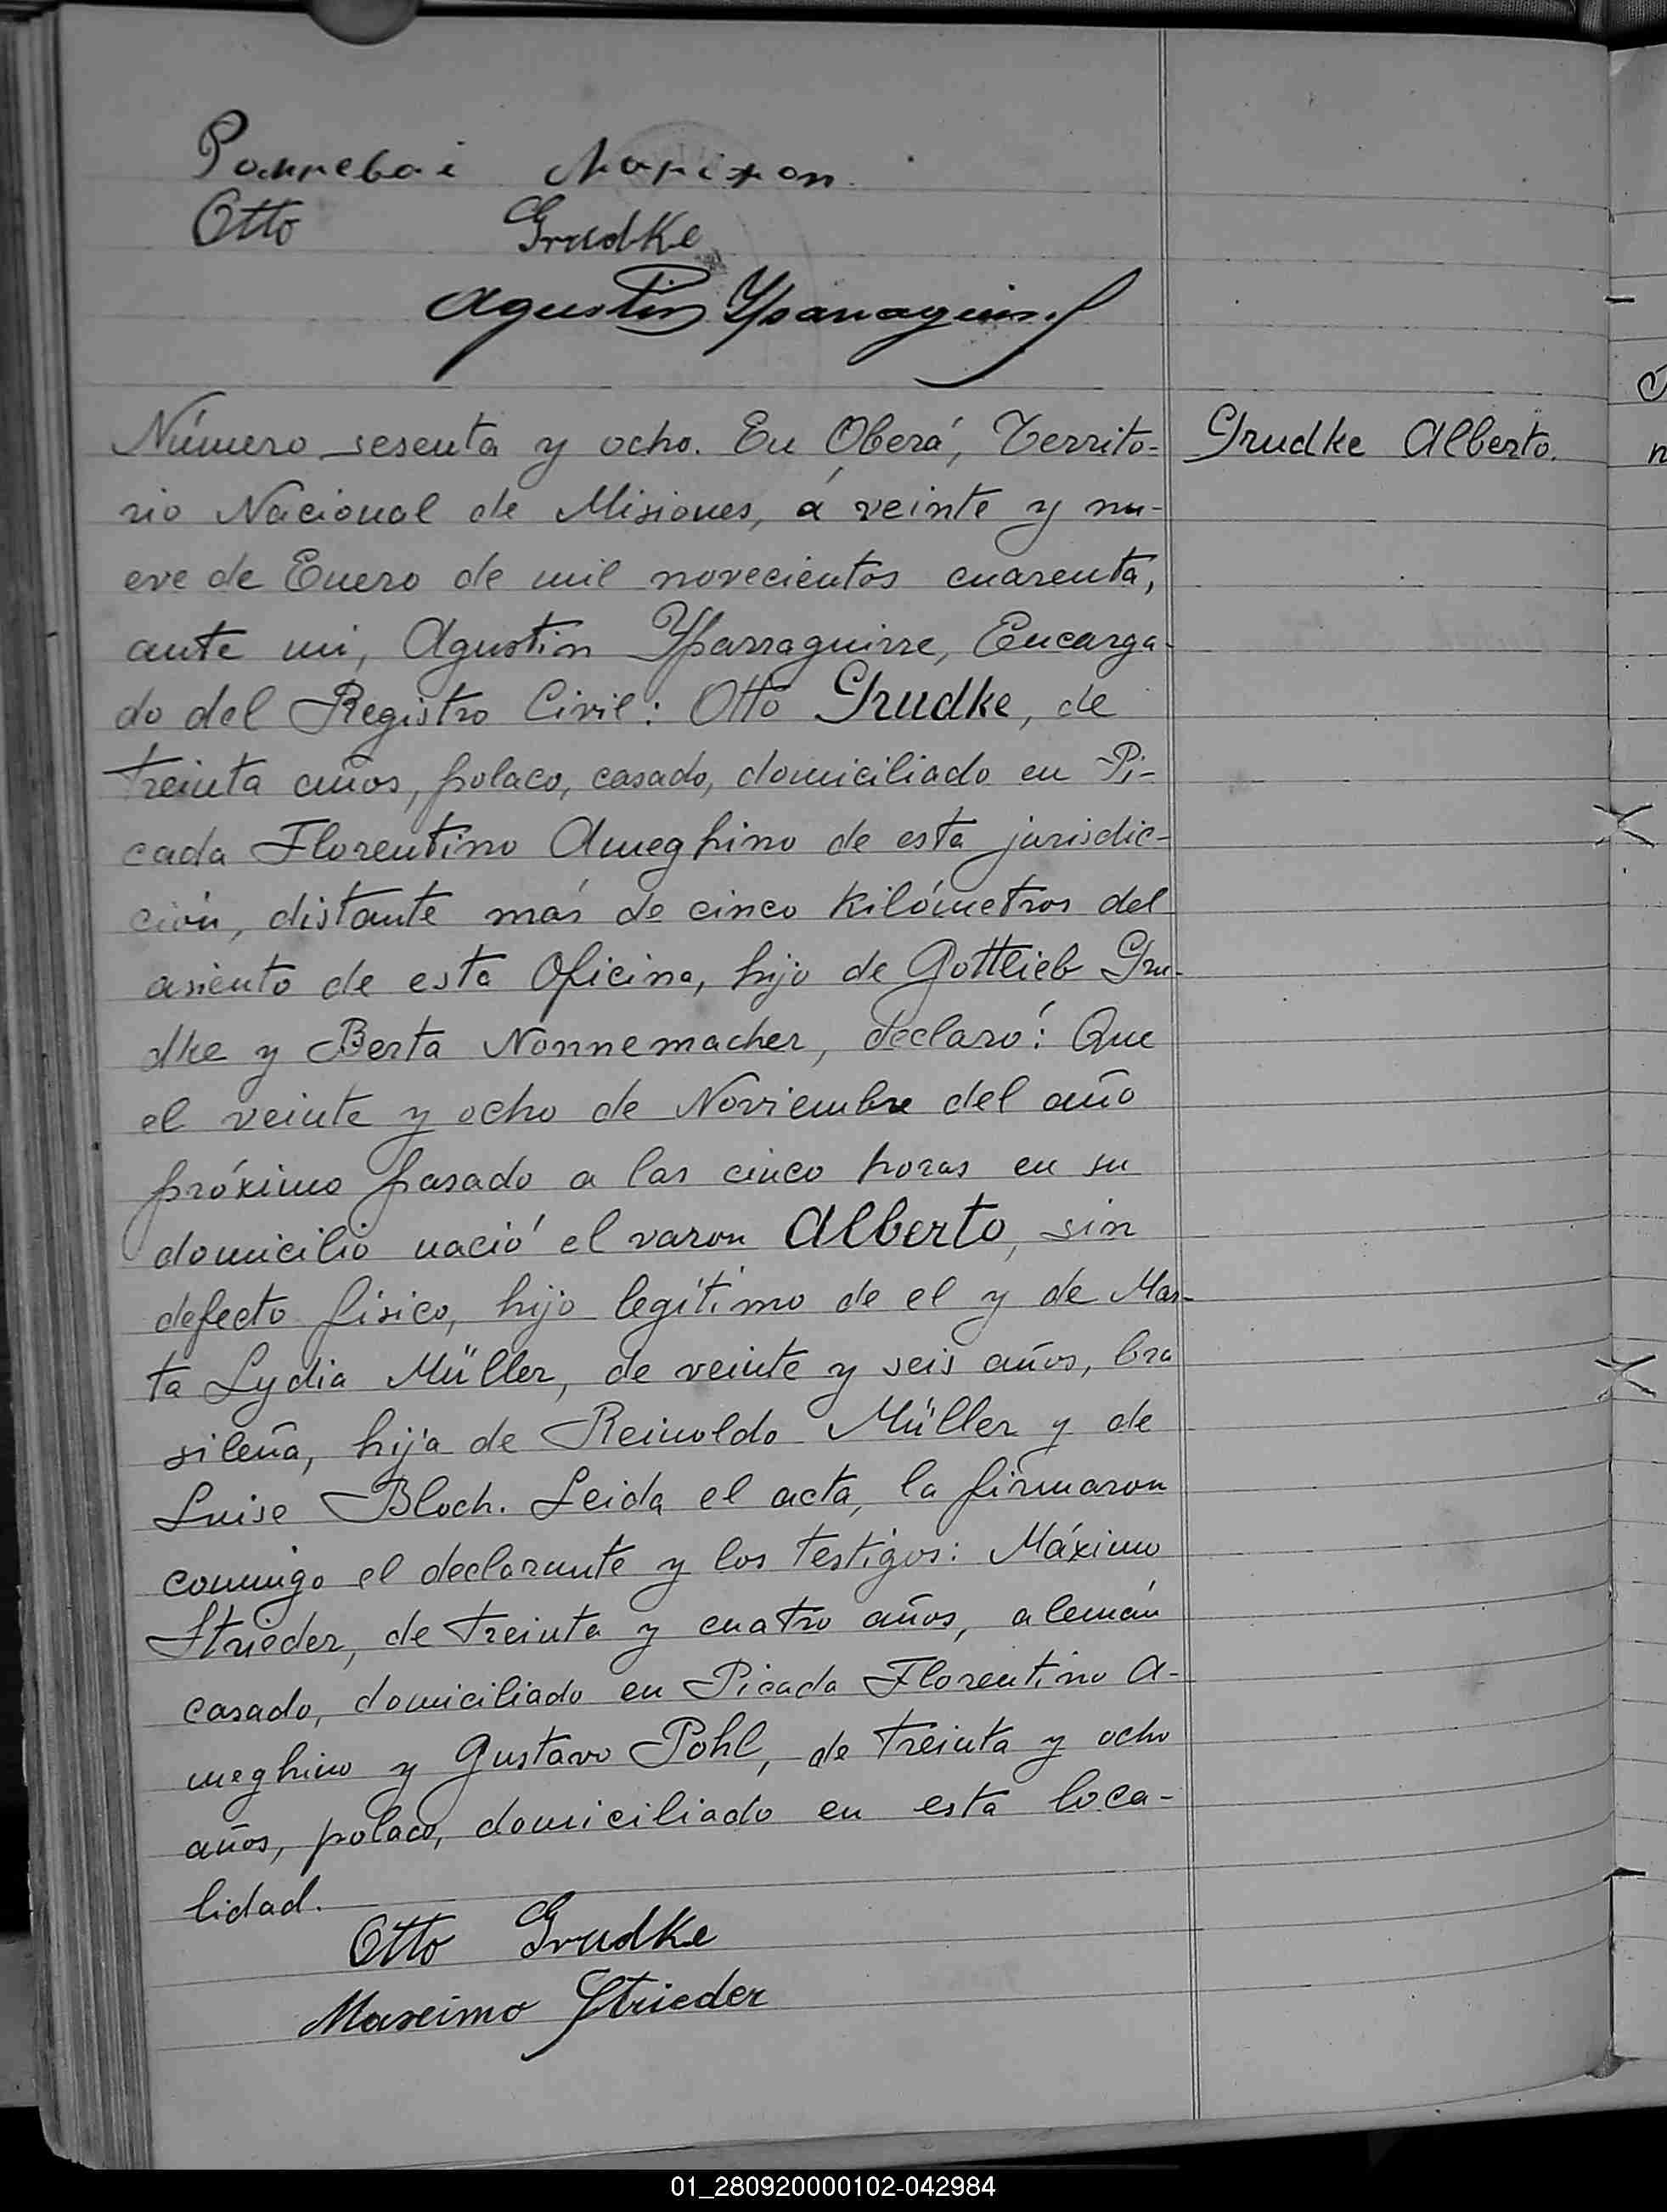 Otto Grudke
Agustin Yparraguirre
Número sesenta y ocho. En Oberá, Territo-
Grudke Alberto.
rio Nacional de Misiones, á veinte y nu-
eve de Enero de mil novecientos cuarenta,
ante mi, Agustin Yparraguirre, Encarga-
do del Registro Civil: Otto Grudke, de
treinta años, polaco, casado, domiciliado en Pi-
cada Florentino Ameghino de esta jurisdic-
ción, distante más de cinco kilómetros del
asiento de esta Oficina, hijo de Gottlieb Gru-
dke y Berta Nonnemacher, declaró: Que
el veinte y ocho de Noviembre del año
próximo pasado a las cinco horas en su
domicilio nació el varon Alberto, sin
defecto fisico, hijo legítimo de el y de Mar-
ta Lydia Müller, de veinte y seis años, bra
sileña, hija de Reinoldo Müller y de
Luise Bloch. Leida el acta, la firmaron
conmigo el declarante y los testigos: Máximo
Strieder, de treinta y cuatro años, alemán
casado, domiciliado en Picada Florentino A-
meghino y Gustavo Pohl, de treinta y ocho
años, polaco, domiciliado en esta loca-
lidad.
Otto Grudke
Maximo Strieder
01_280920000102-042984